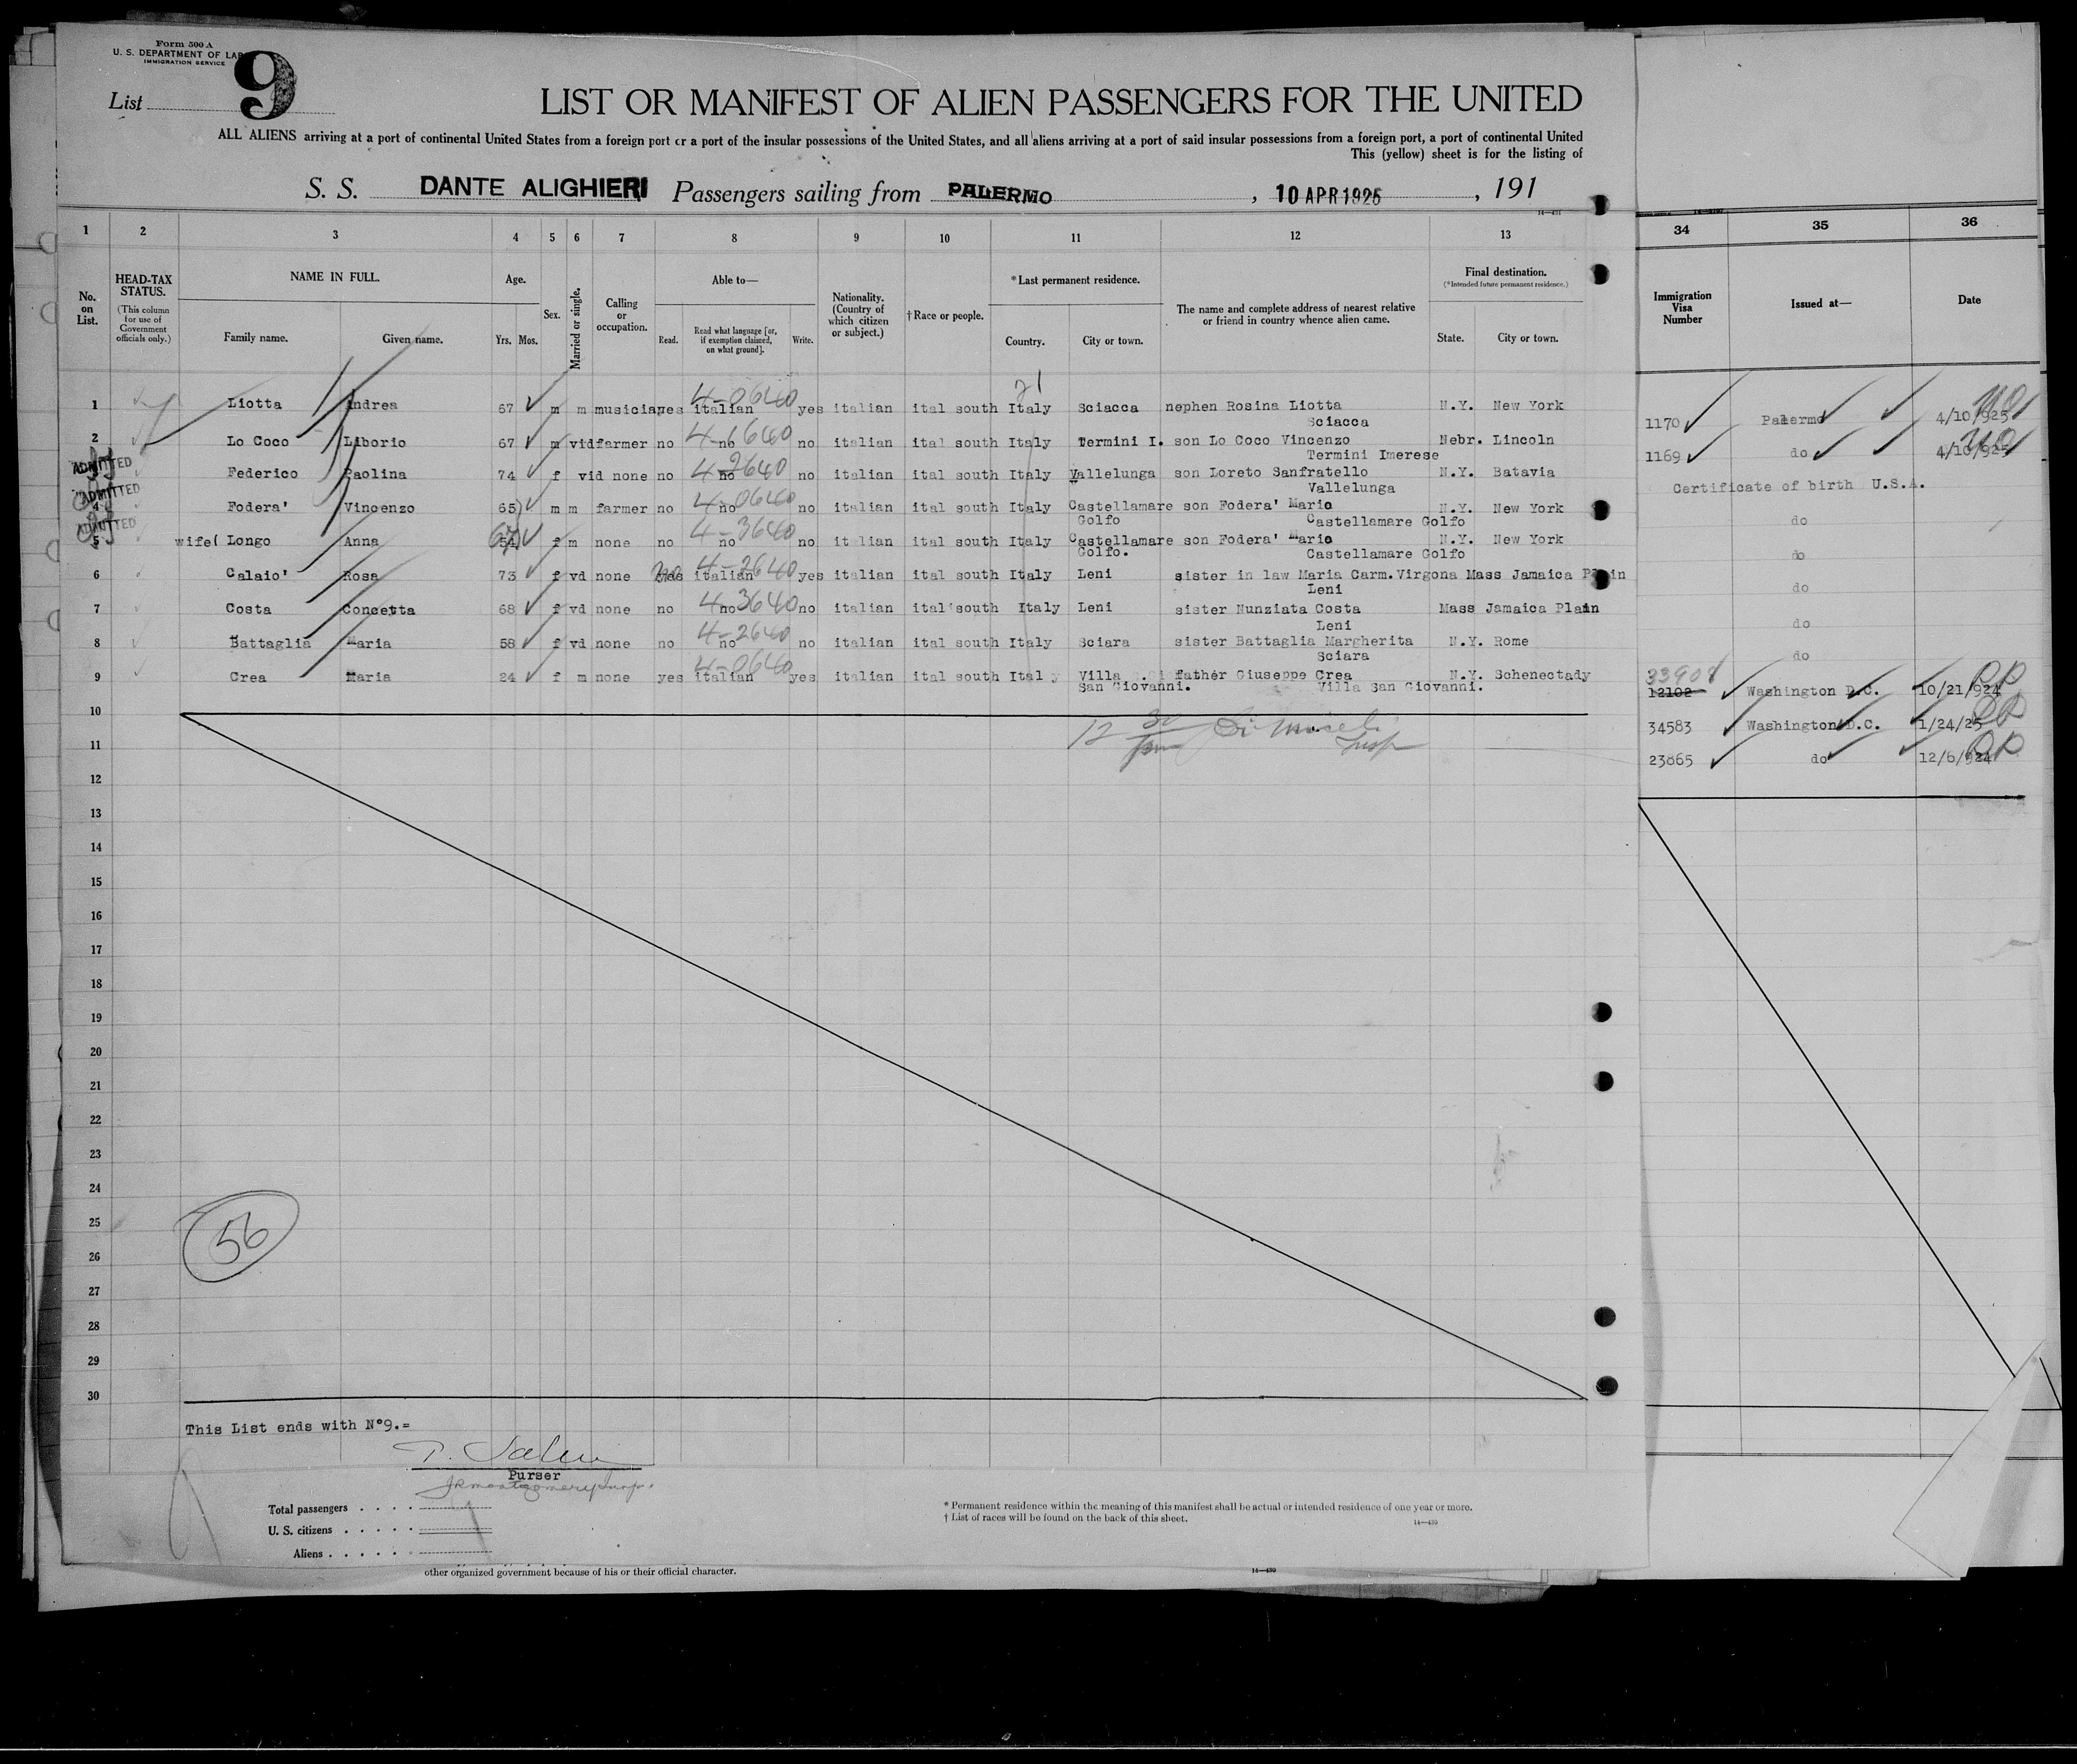 Form 500 A
U. S. DEPARTMENT OF LAB
IMMIGRATION SERVICE
List 9
LIST OR MANIFEST OF ALIEN PASSENGERS FOR THE UNITED
ALL ALIENS arriving at a port of continental United States from a foreign port or a port of the insular possessions of the United States, and all aliens arriving at a port of said insular possessions from a foreign port, a port of continental United
This (yellow) sheet is for the listing of
S. S. DANTE ALIGHIERI Passengers sailing from PALERMO , 10 APR 1925 , 191
1 2 3 4 5 6 7 8 9 10 11 12 13 34 35 36
No. on List.
HEAD-TAX STATUS.
(This column for use of Government officials only.)
NAME IN FULL.
Family name. Given name.
Age.
Yrs. Mos.
Sex.
Married or single.
Calling or occupation.
Able to—
Read. Read what language [or, if exemption claimed, on what ground]. Write.
Nationality. (Country of which citizen or subject.)
†Race or people.
*Last permanent residence.
Country. City or town.
The name and complete address of nearest relative or friend in country whence alien came.
Final destination.
(*Intended future permanent residence.)
State. City or town.
Immigration Visa Number
Issued at—
Date
1 Liotta Andrea 67 m m musician yes italian 4-0640 yes italian ital south Italy Sciacca nephen Rosina Liotta N.Y. New York
Sciacca
2 Lo Coco Liborio 67 m vid farmer no no 4-1640 no italian ital south Italy Termini I. son Lo Coco Vincenzo Nebr. Lincoln
Termini Imerese
ADMITTED Federico Paolina 74 f vid none no no 4-2640 no italian ital south Italy Vallelunga son Loreto Sanfratello N.Y. Batavia
Vallelunga
ADMITTED 4 Fodera' Vincenzo 65) m m farmer no no 4-0640 no italian ital south Italy Castellamare son Fodera' Mario N.Y. New York
Golfo Castellamare Golfo
ADMITTED 5 wife( Longo Anna 54) f m none no no 4-3640 no italian ital south Italy Castellamare son Fodera' Mario N.Y. New York
Golfo. Castellamare Golfo
6 Calaio' Rosa 73 f vd none italian 4-2640 yes italian ital south Italy Leni sister in law Maria Carm.Virgona Mass Jamaica Plain
Leni
7 Costa Concetta 68 f vd none no no 4-3640 no italian ital south Italy Leni sister Nunziata Costa Mass Jamaica Plain
Leni
8 Battaglia Maria 58 f vd none no no 4-2640 no italian ital south Italy Sciara sister Battaglia Margherita N.Y. Rome
Sciara
9 Crea Maria 24 f m none yes italian 4-0640 yes italian ital south Italy Villa father Giuseppe Crea N.Y. Schenectady
San Giovanni. Villa San Giovanni.
1170 Palermo 4/10/925
1169 do 4/10/925
Certificate of birth U.S.A.
do
do
do
do
do
12102 Washington D.C. 10/21/924
34583 Washington D.C. 1/24/25
23865 do 12/6/924
10
11
12
13
14
15
16
17
18
19
20
21
22
23
24
25
26
27
28
29
30
56
This List ends with N°9.=
Purser
Total passengers . . . .
U. S. citizens . . . . .
Aliens . . . . . .
* Permanent residence within the meaning of this manifest shall be actual or intended residence of one year or more.
† List of races will be found on the back of this sheet.
14—430
other organized government because of his or their official character.
14—430